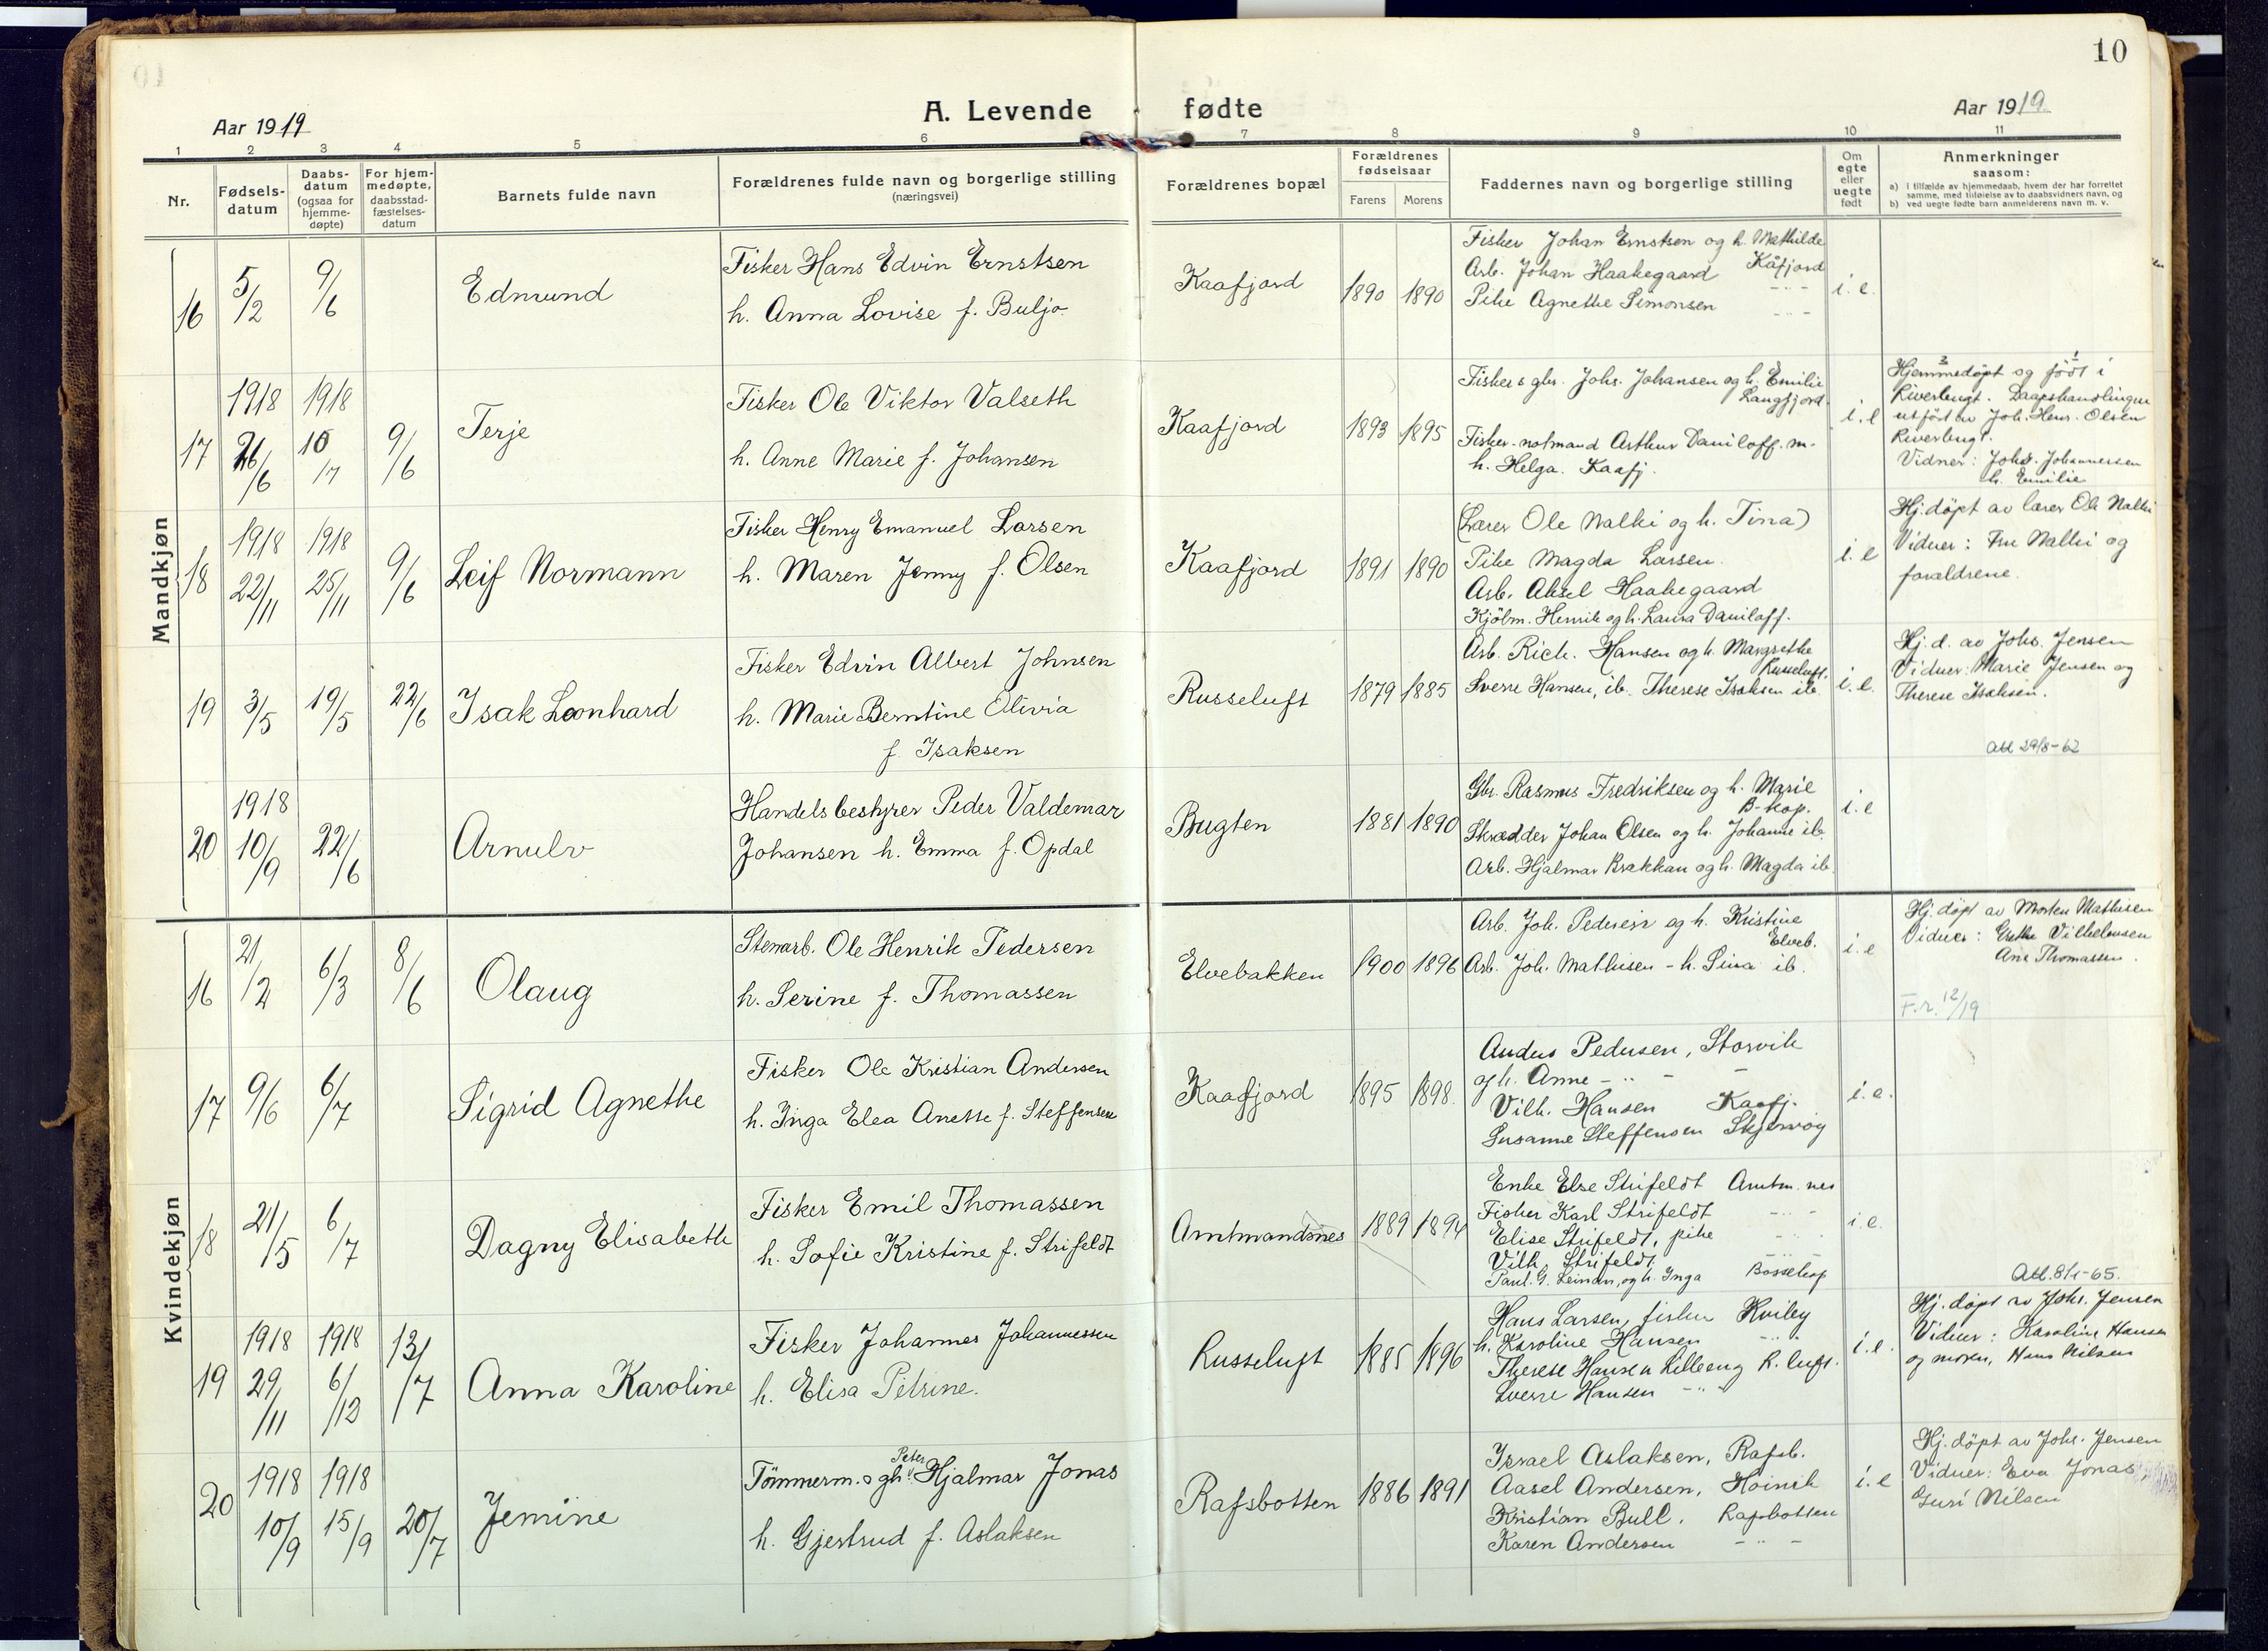 10
Aar 1919
A. Levende fødte
Aar 1919
1 2 3 4 5 6 7 8 9 10 11
Nr.
Fødsels-
datum
Daabs-
datum
(ogsaa for
hjemme-
døpte)
For hjem-
medøpte,
daabsstad-
fæstelses-
datum
Barnets fulde navn
Forældrenes fulde navn og borgerlige stilling
(næringsvei)
Forældrenes bopæl
Forældrenes
fødselsaar
Farens Morens
Faddernes navn og borgerlige stilling
Om
egte
eller
uegte
født
Anmerkninger
saasom:
a) i tilfælde av hjemmedaab, hvem der har forrettet
samme, med tilføielse av to daabsvidners navn, og
b) ved uegte fødte barn anmelderens navn m. v.
Mandkjøn
16 5/2 9/6
Edmund
Fisker Hans Edvin Ernstsen
h. Anna Lovise f. Buljo
Kaafjord
1890 1890
Fisker Johan Ernstsen og h. Mathilde
Kåfjord
Arb. Johan Haakegaard - " -
Pike Agnethe Simonsen - " -
i. e.
17 1918 26/6 1918 10/7 9/6
Terje
Fisker Ole Viktor Valseth
h. Anne Marie f. Johansen
Kaafjord
1893 1895
Fisker s gbr. Johs. Johansen og h. Emilie
Langfjord.
Fisker-notmand Arthur Daniloff. m.
h. Helga. Kaafj.
i. e
Hjemmedøpt og født i
Riverbugt. Daapshandlingen
utført av Joh. Henr. Olsen
Riverbugt.
Vidner: Johs. Johannessen
h. Emilie
18 1918 22/11 1918 25/11 9/6
Leif Normann
Fisker Henry Emanuel Larsen
h. Maren Jenny f. Olsen
Kaafjord
1891 1890
(Lærer Ole Nalki og h. Tina)
Pike Magda Larsen.
Arb. Aksel Haakegaard
Kjöbm. Henrik og h. Laura Daniloff.
i. e
Hj. døpt av lærer Ole Nalki
Vidner: Fru Nalki og
forældrene.
19 3/5 19/5 22/6
Isak Leonhard
Fisker Edvin Albert Johnsen
h. Marie Berntine Olivia
f. Isaksen
Russeluft
1879 1885
Arb. Rich. Hansen og h. Margrethe
Russeluft.
Sverre Hansen, ib. Therese Isaksen ib.
i. e.
Hj. d. av Johs. Jensen
Vidner: Marie Jensen og
Therese Isaksen.
Att 29/8-62
20 1918 10/9 22/6
Arnulv
Handelsbestyrer Peder Valdemar
Johansen h. Emma f. Opdal
Bugten
1881 1890
Gbr. Rasmus Fredriksen og h. Marie
B-kop.
Skrædder Johan Olsen og h. Johanne ib.
Arb. Hjalmar Brækkan og h. Magda ib.
i. e
Kvindekjøn
16 21/2 6/3 8/6
Olaug
Stenarb. Ole Henrik Pedersen
h. Serine f. Thomassen
Elvebakken
1900 1896
Arb. Joh. Pedersen og h. Kristine
Elveb.
Arb. Joh. Mathisen - h. Sina ib.
i. e
Hj. døpt av Morten Mathisen
Vidner: Grethe Vilhelmsen
Ane Thomassen.
F.r. 12/19
17 9/6 6/7
Sigrid Agnethe
Fisker Ole Kristian Andersen
h. Inga Elea Anette f. Steffensen
Kaafjord
1895 1898.
Anders Pedersen, Storvik
og h. Anne - " -
Vilh. Hansen Kaafj.
Susanne Steffensen Skjervøy
i. e.
18 21/5 6/7
Dagny Elisabeth
Fisker Emil Thomassen
h. Sofie Kristine f. Strifeldt
Amtmandsnes
1889 1894
Enke Else Strifeldt Amtm. nes
Fisker Karl Strifeldt - " -
Elise Strifeldt, pike - " -
Vilh Strifeldt - " -
Paul. G. Leinan, og h. Inga Bossekop
i. e.
Att. 8/1-65.
19 1918 29/11 1918 6/12 13/7
Anna Karoline
Fisker Johannes Johannessen
h. Elisa Petrine.
Russeluft
1885 1896
Hans Larsen, fisker Kviby
h. Karoline Hansen - " -
Therese Hansen Lilleeng R. luft.
Sverre Hansen - " -
i. e.
Hj. døpt av Johs. Jensen
Vidner: Karoline Hansen
og moren, Hans Nilsen
20 1918 10/9 1918 15/9 20/7
Jemine
Peter
Tömmerm. o gb. Hjalmar Jonas
h. Gjertrud f. Aslaksen
Rafsbotten
1886 1891
Israel Aslaksen, Rafsb.
Aasel Andersen,
Kristian Bull. Rafsbotten
Karen Andersen - " -
i. e
Hj. døpt av Johs. Jensen
Vidner: Eva Jonas,
Guri Nilsen